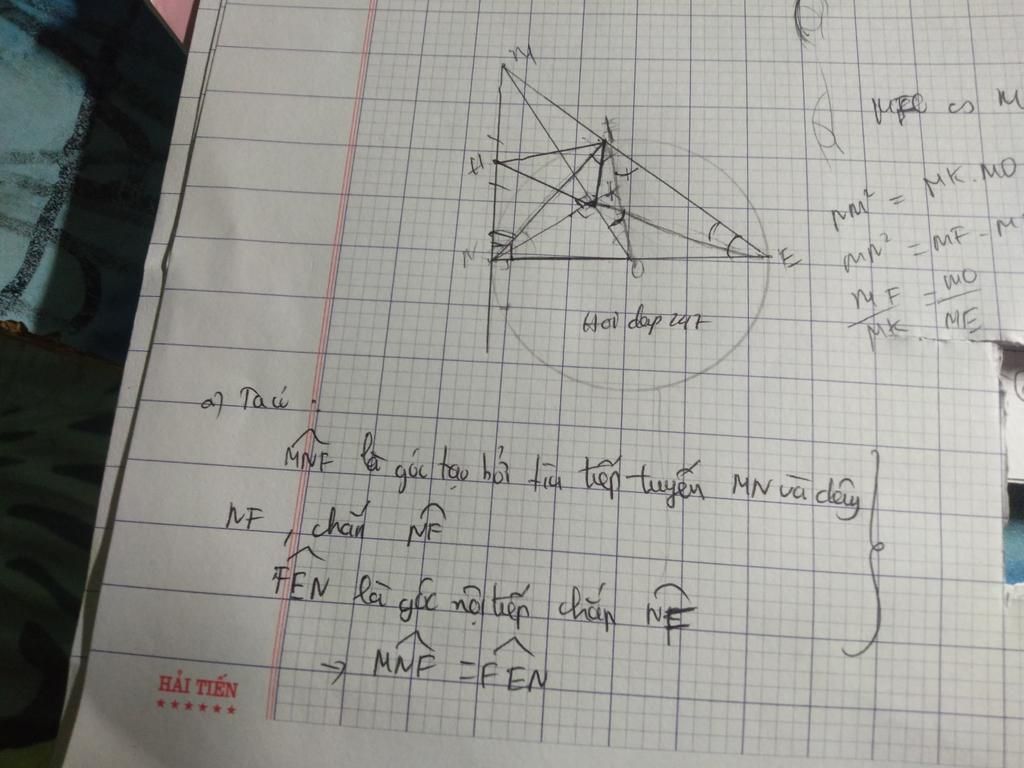 M
H
N
O
E
Hoi dap 247
MN² = MK.MO
MN² = MF.
MF/MK = MO/ME
a) Ta có :
MNF là góc tạo bởi tia tiếp tuyến MN và dây
NF, chắn NF
FEN là góc nội tiếp chắn NF
→ MNF = FEN
HẢI TIẾN